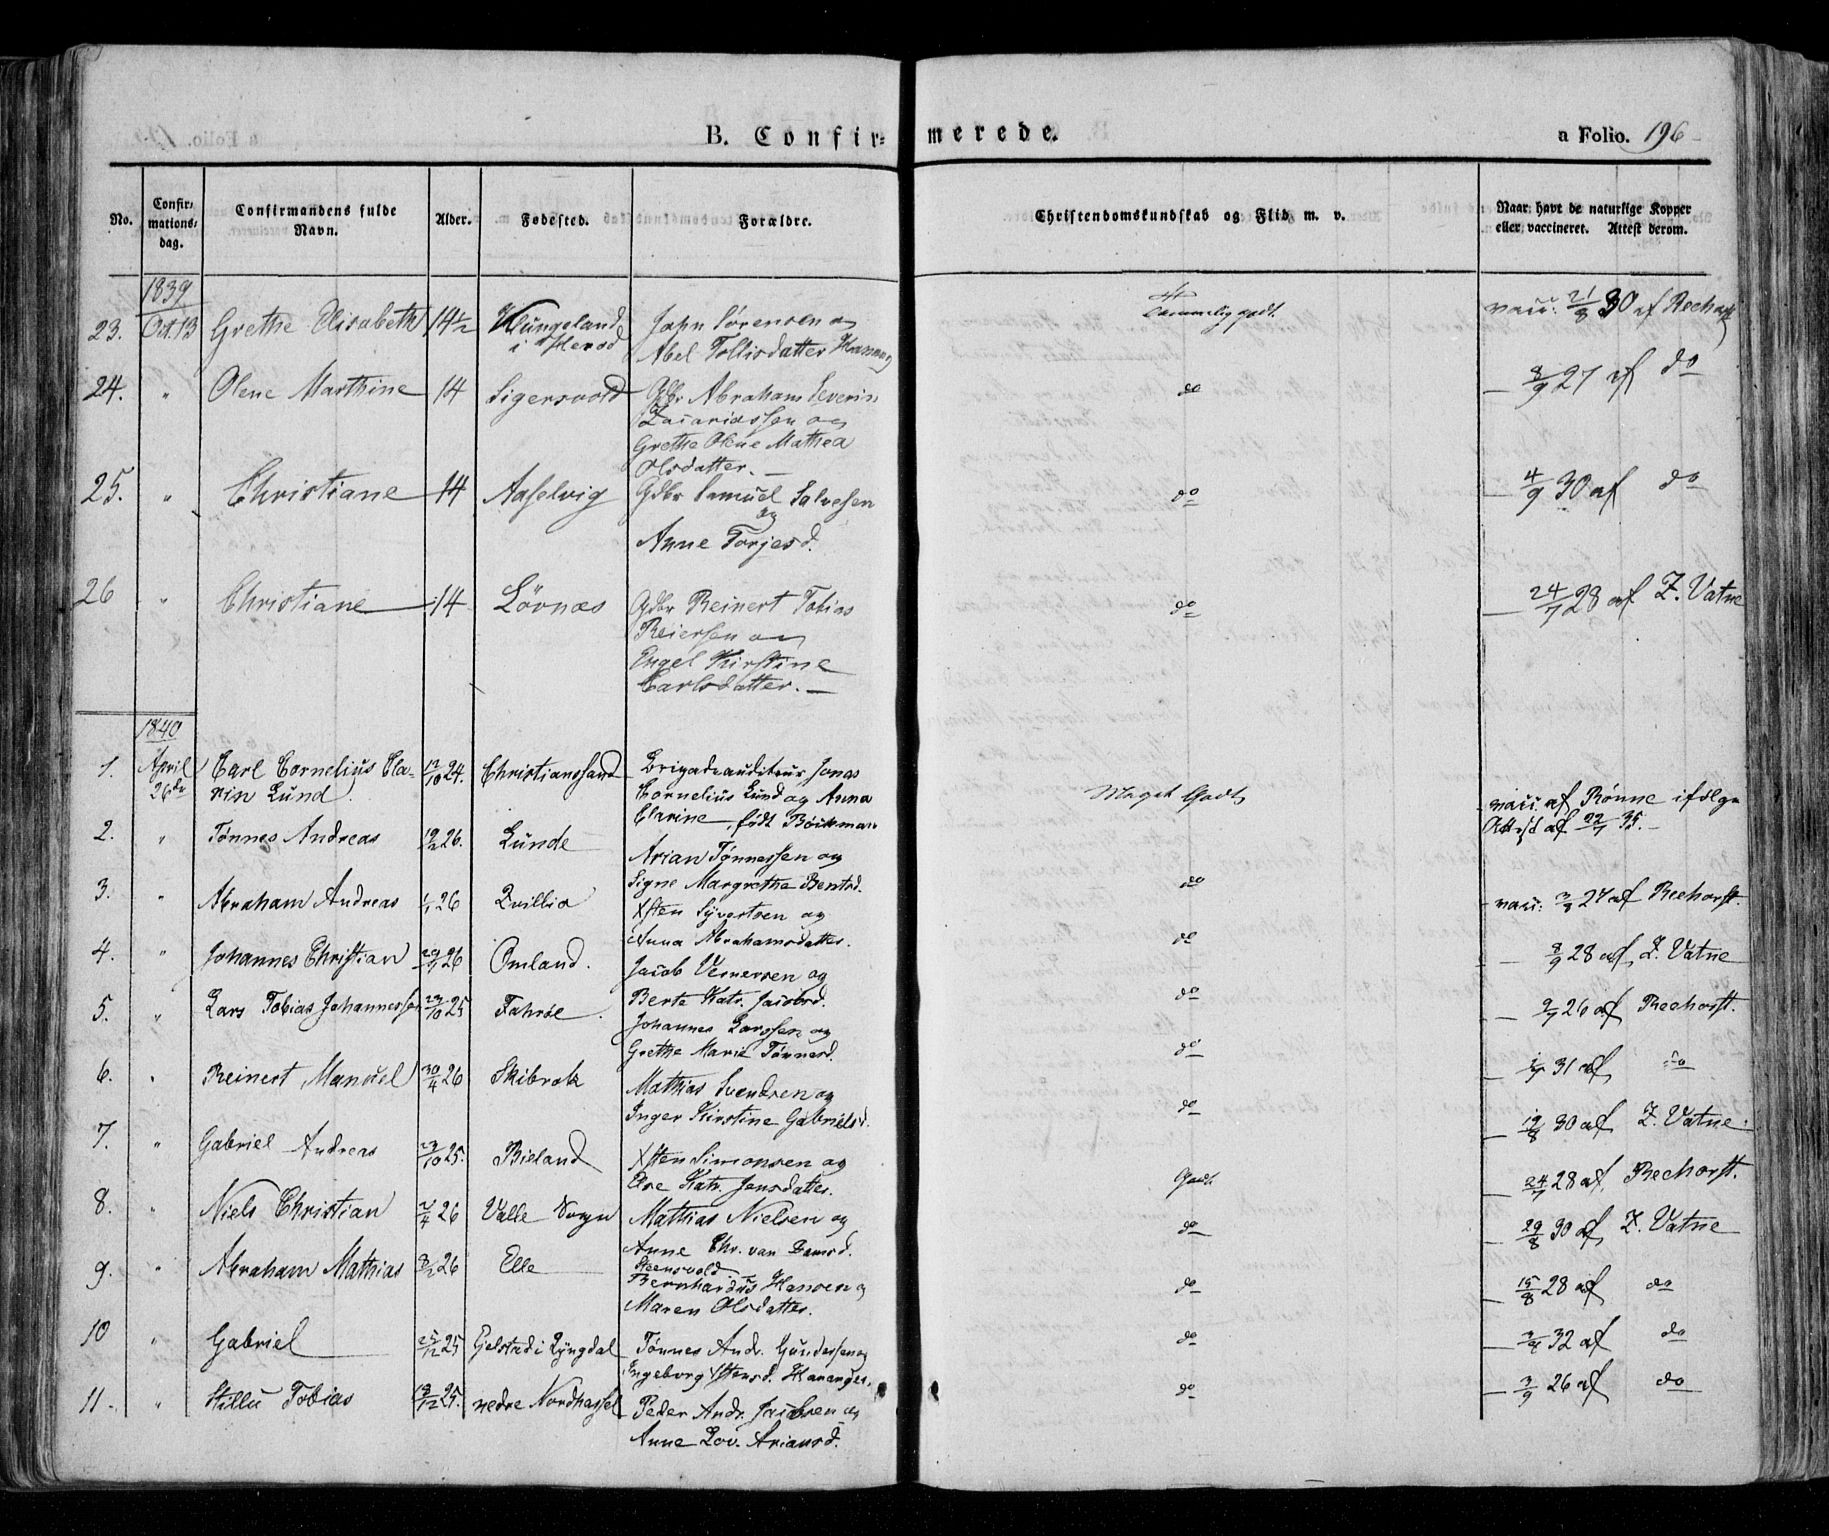 B. Confirmerede.
a Folio. 196
No. Confirmationsdag. Confirmandens fulde Navn. Alder. Fødested. Forældre. Christendomskundskab og Flid m. v. Naar havt de naturlige Kopper eller vaccineret. Attest derom.
1839
23. Oct. 13 Grethe Elisabeth 14½ Kungeland i Herod John Sørensen og
Abel Tollisdatter
temmelig godt vacc: 21/8 30 af Reehorst
24. " Olene Marthine 14 Sigersvold Gdbr Abraham Severin
Zacariassen og
Grethe Olene Mathea
Olsdatter. —
do — 8/9 27 af do
25. " Christiane 14 Aaselvig Gdbr Samuel Salvesen
og
Anne Torjesd.
do — 4/9 30 af do
26 " Christiane 14 Lövnæs Gdbr Reinert Tobias
Reiersen og
Engel Kirstine
Carlsdatter. —
do — 24/7 28 af Z. Vatne
1840
1. April 26de Carl Cornelius Clarin Lund 12/10 24. Christianssand Brigadeauditeur Jonas
Cornelius Lund og Anna
Clarine, født Böckman
Meget Godt vacc. af Rönne ifølge
Attest af 22/7 35. —
2. " Tønnes Andreas 19/2 26. Lunde Arian Tönnessen og
Signe Margrethe Bentsd.
do vacc: 3/8 27 af Reehorst.
3. " Abraham Andreas 1/1 26 Qvillia Xsten Syvertsen og
Anna Abrahamsdatter.
do — 8/9 28 af Z. Vatne
4. " Johannes Christian 26 Omland. Jacob Vernersen og
Berte Katr. Jacobsd.
do — 9/7 26 af Reehorst.
5. " Lars Tobias Johannessen 23/10 25 Fahröe. Johannes Larssen og
Grethe Marie Tönnesd.
do — 31 af do
6. " Reinert Manuel 30/4 26 Skibrok Mathias Svendsen og
Inger Kirstine Gabrielsd.
do — 19/8 30 af Z. Vatne.
7. " Gabriel Andreas 23/10 25. Bieland Xsten Simonsen og
Else Katr. Jensdatter.
Godt — 24/7 28 af Reehorst.
8. " Niels Christian 2/4 26 Valle Sogn Mathias Nielsen og
Anne Chr. van Damsd.
do — 29/8 30 af Z. Vatne
9. " Abraham Mathias 26 Elle Steensvold
Bernhardus Hansen og
Maren Olsdatter.
do — 15/8 28 af do
10 " Gabriel 25/12 25 Gjelstad i Lyngdal Tønnes Andr. Gundersen og
Ingeborg Xstensd. Haranger.
do — 32 af do
11. " Tillu Tobias 18/12 25. nedre Nordhassel Peder Andr. Jacobsen og
Anne Lov. Ariansd.
do — 3/9 26 af do